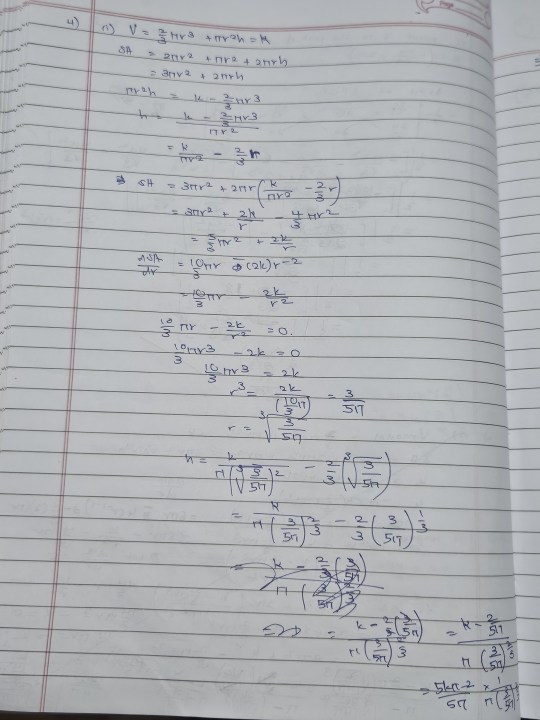 4) n) V = 2/3 πr³ + πr²h = k
SA = 2πr² + πr² + 2πrh
= 3πr² + 2πrh
πr²h = k - 2/3 πr³
h = (k - 2/3 πr³)/(πr²)
= k/(πr²) - 2/3 r
SA = 3πr² + 2πr(k/(πr²) - 2/3 r)
= 3πr² + 2k/r - 4/3 πr²
= 5/3 πr² + 2k/r
dSA/dr = 10/3 πr - (2k)r⁻²
= 10/3 πr - 2k/r²
10/3 πr - 2k/r² = 0.
10/3 πr³ - 2k = 0
10/3 πr³ = 2k
r³ = 2k/(10/3 π) = 3/5π
r = ∛(3/5π)
h = k/(π(∛(3/5π))²) - 2/3(∛(3/5π))
= k/(π(3/5π)^(2/3)) - 2/3(3/5π)^(1/3)
= (k - 2/3(3/5π))/(π(3/5π)^(2/3))
=> = (k - 2/3(3/5π))/(π(3/5π)^(2/3)) = (k - 2/5π)/(π(3/5π)^(2/3))
= (5kπ-2)/5π ×